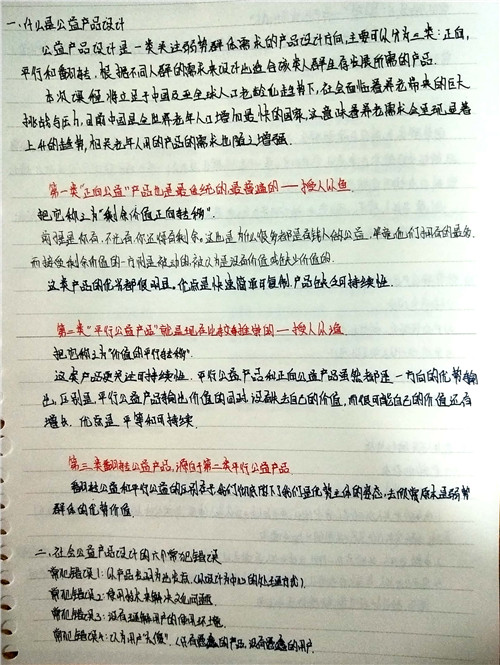 一、什么是公益产品设计
公益产品设计是一类关注弱势群体需求的产品设计方向,主要可以分为三类:正向,
平行和翻转,根据不同人群的需求来设计出适合该类人群生存发展所需的产品.
本次课程将立足于中国及至全球人口老龄化趋势下,社会面临着养老带来的巨大
挑战与压力,目前中国是全世界老年人口增加最快的国家,这意味着养老需求会呈现显著
上升的趋势,相关老年人用的产品的需求也随之增强.
第一类"正向公益"产品也是最传统的最普遍的——授人以鱼.
把它称之为"剩余价值正向转移".
前提是你有,不光有你还得有剩余。这也是为什么很多都是有钱人做公益,
而接受剩余价值的一方则是被动的,被认为是没有价值或缺少价值的.
这类产品的优劣都很明显。优点是快速简单可复制,产品缺乏可持续性.
第二类"平行公益产品"就是现在比较推崇的——授人以渔.
把它称之为"价值的平行转移".
这类产品更关注可持续性.平行公益产品和正向公益产品虽然都是一方向的优势输
出,区别是,平行公益产品输出价值的同时,没有失去自己的价值,而很可能自己的价值还有
增长.优点是平等和可持续.
第三类翻转公益产品,源自于第二类平行公益产品.
翻转公益和平行公益的区别在于我们彻底闭下了我们是优势主体的姿态,去欣赏原来是弱势
群体的优势价值.
二、社会公益产品设计的六个常犯错误
常犯错误1:以产品出发为出发点.(以设计为中心的处理方式)
常犯错误2:使用技术来解决文化问题.
常犯错误3:没有理解用户的使用环境.
常犯错误4:以为用户"太傻".(只有愚蠢的产品,没有愚蠢的用户.